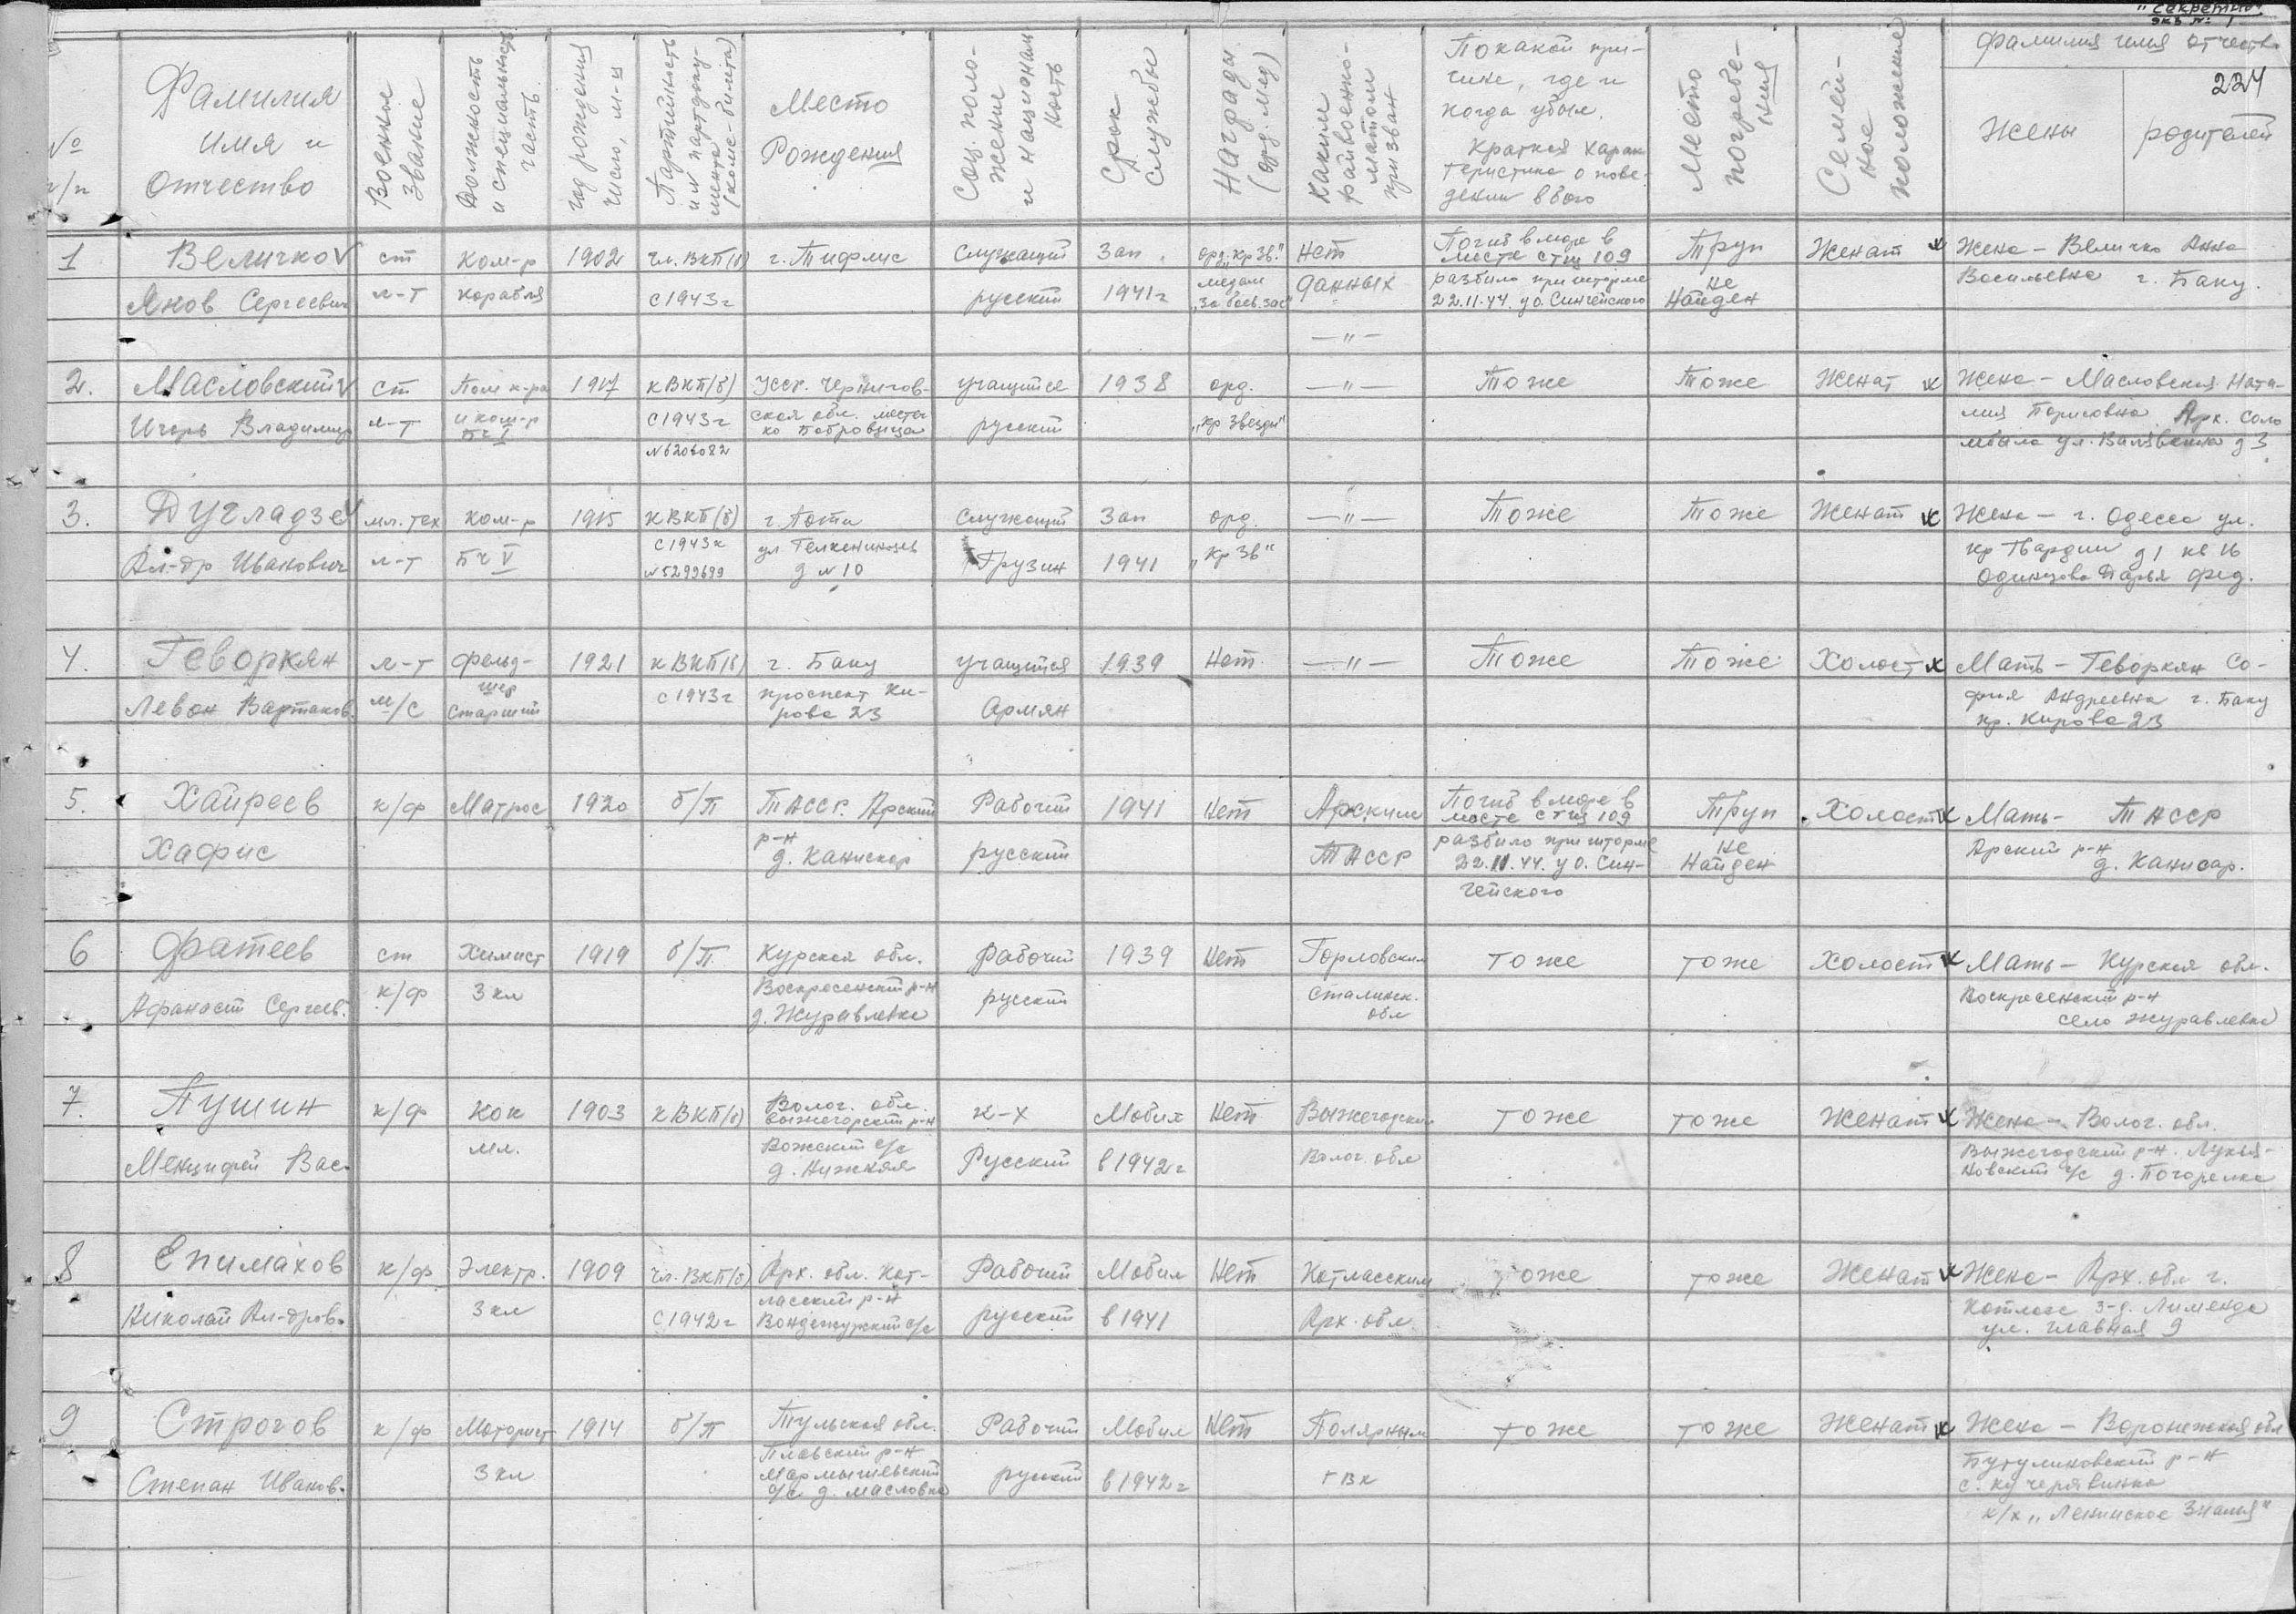 "Секретно"
экз № 1
224
№ п/п
Фамилия имя и отчество
Военное звание
Должность и специальность
часть
Год рождения число, м-ц
Партийность и № партдокумента (комс-билета)
Место Рождения
Соц. положение и национальность
Срок службы
Награды (орд. мед)
Каким райвоенкоматом призван
По какой причине, где и когда убыл.
Краткая характеристика о поведении в бою
Место погребения
Семейное положение
Фамилия имя отчество
Жены
родителей
1 Величко ст ком-р 1902 чл. ВКП(б) г. Тифлис Служащий Зап. орд. "Кр Зв." Нет Погиб в море в Труп Женат Жена - Величко Анна
месте СТЩ 109
Яков Сергеевич л-т корабля с 1943г русский 1941г медаль "За боев. зас" данных разбило при шторме не Васильевна г. Баку.
22.11.44. у о. Сингейского Найден
— " —
2. Масловский ст Пом к-ра 1917 к ВКП(б) УССР. Чернигов- учащийся 1938 орд. — " — Тоже Тоже Женат Жена - Масловская Ната-
Игорь Владимир л-т и ком-р с 1943г ская обл. местеч- русский "Кр Звезды" лия Борисовна Арх. Соло
БЧ I ко
№6206082 мбала ул. д 3
3. Дугладзе мл. тех ком-р 1915 к ВКП(б) г. Поти Служащий Зап орд. — " — Тоже Тоже Женат Жена - г. Одесса ул.
Ал-др Иванович л-т БЧ V с 1943г ул Грузин 1941 "Кр Зв" Кр Гвардии д 1 кв 16
№5299699 д № 10 Одинцова Дарья Фед.
4. Геворкян л-т фельд- 1921 к ВКП(б) г. Баку учащийся 1939 Нет. — " — Тоже Тоже Холост Мать - Геворкян Со-
Левон Вартанов. м/с шер с 1943г проспект Ки- Армян фия Андреевна г. Баку
старший рова 23 пр. Кирова 23
5. Хайреев к/ф Матрос 1920 б/п ТАССР. Арский Рабочий 1941 Нет Арским Погиб в море в Труп Холост Мать - ТАССР
месте СТЩ 109
Хафис р-н русский ТАССР разбило при шторме не Арский р-н
д. Канисар 22.11.44. у о. Син- Найден д. Канисар.
гейского
6 Фатеев ст Химист 1919 б/п Курская обл. Рабочий 1939 Нет Горловским тоже тоже Холост Мать - Курская обл.
Афанасий Сергеев. к/ф 3 кл Воскресенский р-н русский Сталинск. Воскресенский р-н
д. Журавлевка обл село Журавлевка
7. Пушин к/ф Кок 1903 к ВКП(б) Волог. обл. к-х Мобил Нет Вытегорским тоже тоже Женат Жена - Волог. обл.
Вытегорский р-н
Вас. мл. с/с Русский в 1942г Волог. обл Вытегорский р-н. Лукья-
д. Нижняя новский с/с д. Погорелка
8 Епимахов к/ф Электр. 1909 чл. ВКП(б) Арх. обл. Кот- Рабочий Мобил Нет Котласским тоже тоже Женат Жена - Арх. обл г.
Николай Ал-дров. 3 кл с 1942г ласский р-н русский в 1941 Арх. обл Котлас з-д. Лименда
Вондокурский с/с ул. Главная 9
9 Строгов к/ф Моторист 1914 б/п Тульская обл. Рабочий Мобил Нет Полярным тоже тоже Женат Жена - Воронежская обл
Плавский р-н
Степан Иванов. 3 кл Мармыжевский русский в 1942г ГВК р-н
с/с д. Масловка с.
к/х "Ленинское Знамя"